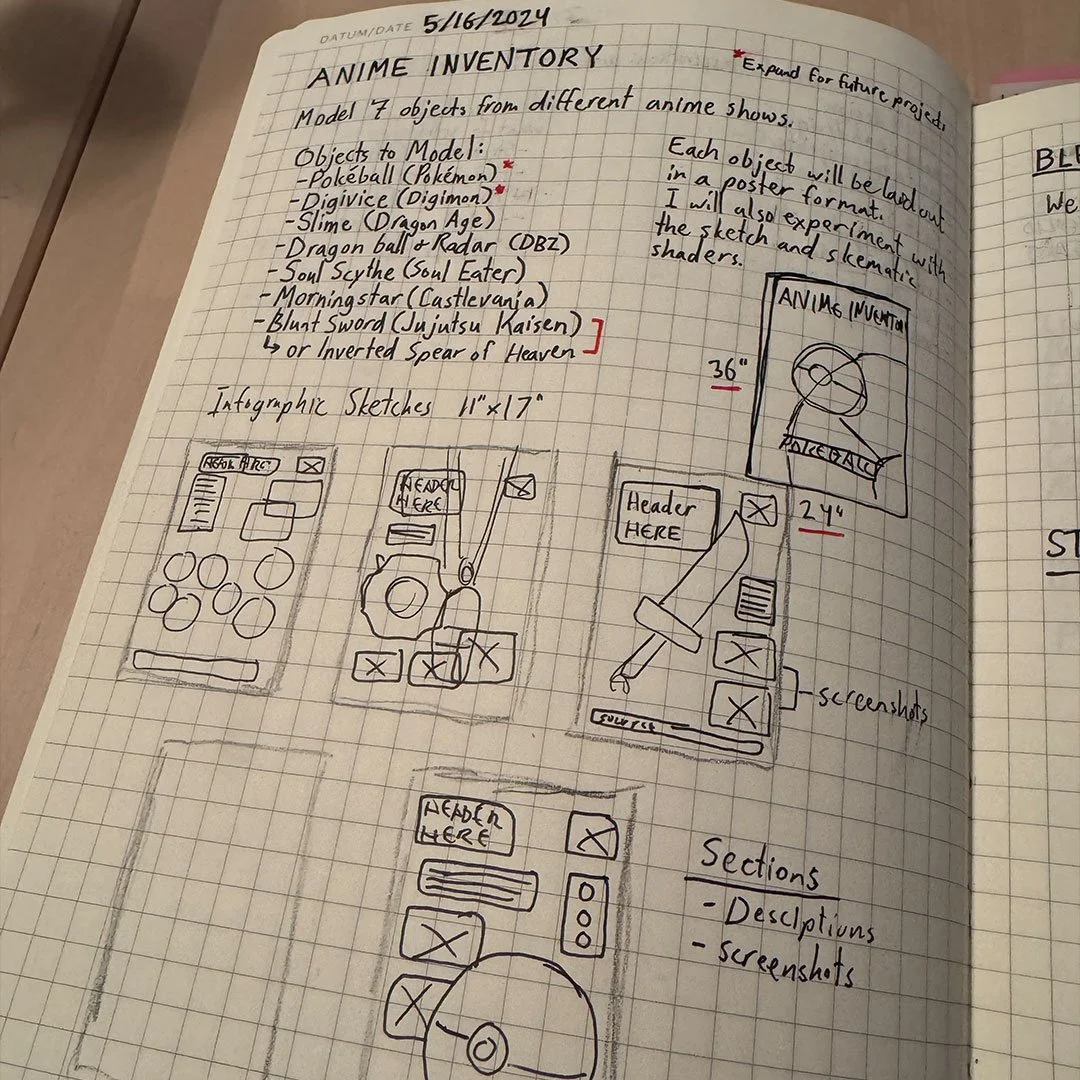 DATUM/DATE 5/16/2024
ANIME INVENTORY
*Expand for future projects
Model 7 objects from different anime shows.
Objects to Model:
-Pokéball (Pokémon)*
-Digivice (Digimon)*
-Slime (Dragon Age)
-Dragon ball + Radar (DBZ)
-Soul Scythe (Soul Eater)
-Morningstar (Castlevania)
-Blunt Sword (Jujutsu Kaisen)
↳ or Inverted Spear of Heaven
Each object will be laid out
in a poster format.
I will also experiment with
the sketch and skematic
shaders.
ANIME INVENTO
36"
POKEBALL
24"
Infographic Sketches 11"x17"
HEADER
HERE
Header
HERE
screenshots
SOURCE
HEADER
HERE
Sections
- Desciptions
- screenshots
BLE
We
ST